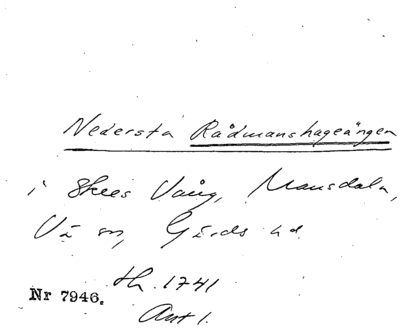 Nedersta Rådmanshageängen
i Skees Vång, Mansdala,
Vä sn, Gärds hd
th. 1741
Nr 7946.
Akt 1.